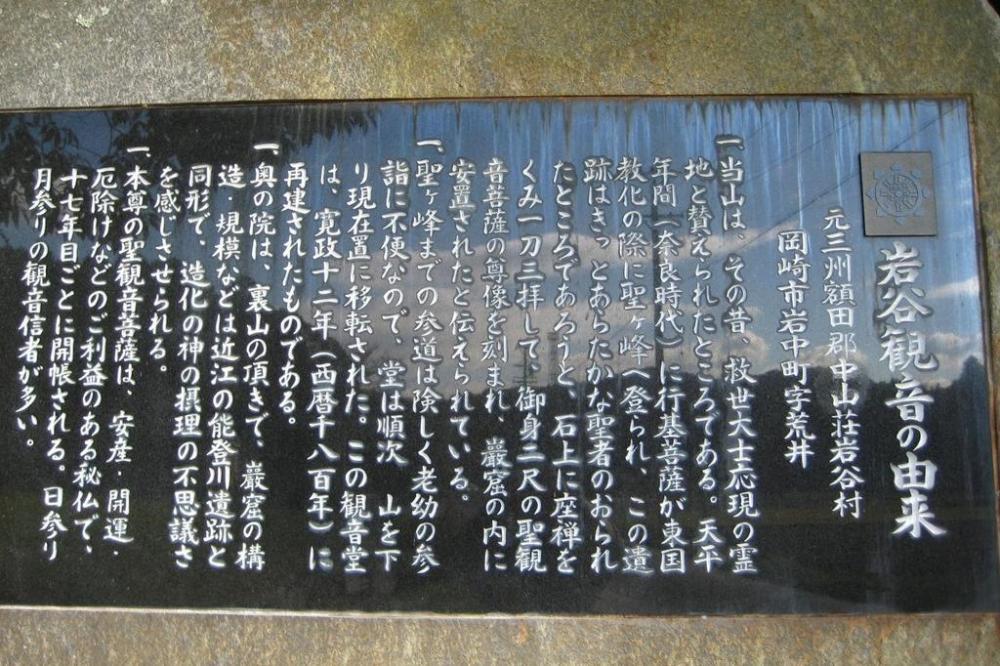 岩谷観音の由来
元三州額田郡中山荘岩谷村
岡崎市岩中町字荒井
一、当山は、その昔、救世大士応現の霊
地と賛えられたところである。天平
年間(奈良時代)に行基菩薩が東国
教化の際に聖ヶ峰へ登られ、この遺
跡はきっとあらたかな聖者のおられ
たところであろうと、石上に座禅を
くみ一刀三拝して、御身二尺の聖観
音菩薩の尊像を刻まれ、巖窟の内に
安置されたと伝えられている。
一、聖ヶ峰までの参道は険しく老幼の参
詣に不便なので、堂は順次 山を下
り現在置に移転された。この観音堂
は、寛政十二年(西暦千八百年)に
再建されたものである。
一、奥の院は、裏山の頂きで、巖窟の構
造・規模などは近江の能登川遺跡と
同形で、造化の神の摂理の不思議さ
を感じさせられる。
一、本尊の聖観音菩薩は、安産・開運・
厄除けなどのご利益のある秘仏で、
十七年目ごとに開帳される。日参り
月参りの観音信者が多い。